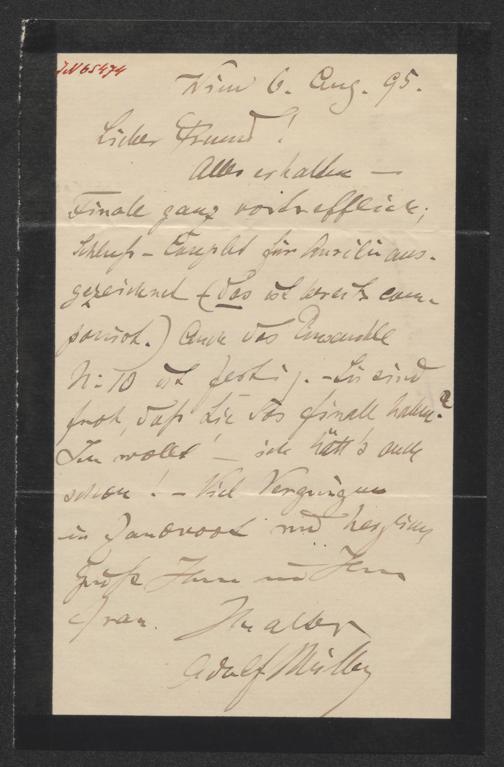 JN 65474
Wien 6. Aug. 95.
Lieber Freund!
Alles erhalten —
Finale ganz vortrefflich;
Schluß-Couplet für aus-
gezeichnet (das ist bereits com-
ponirt.) Auch das Ensemble
No 10 ist fertig. — Sie sind
froh, daß Sie das Finale haben?
Ich wollt' — ich hätt's auch
schon! — Viel Vergnügen
in Zandvoort und herzlichen
Gruß Ihnen und Ihrer
Frau. Ihr alter
Adolf Müller